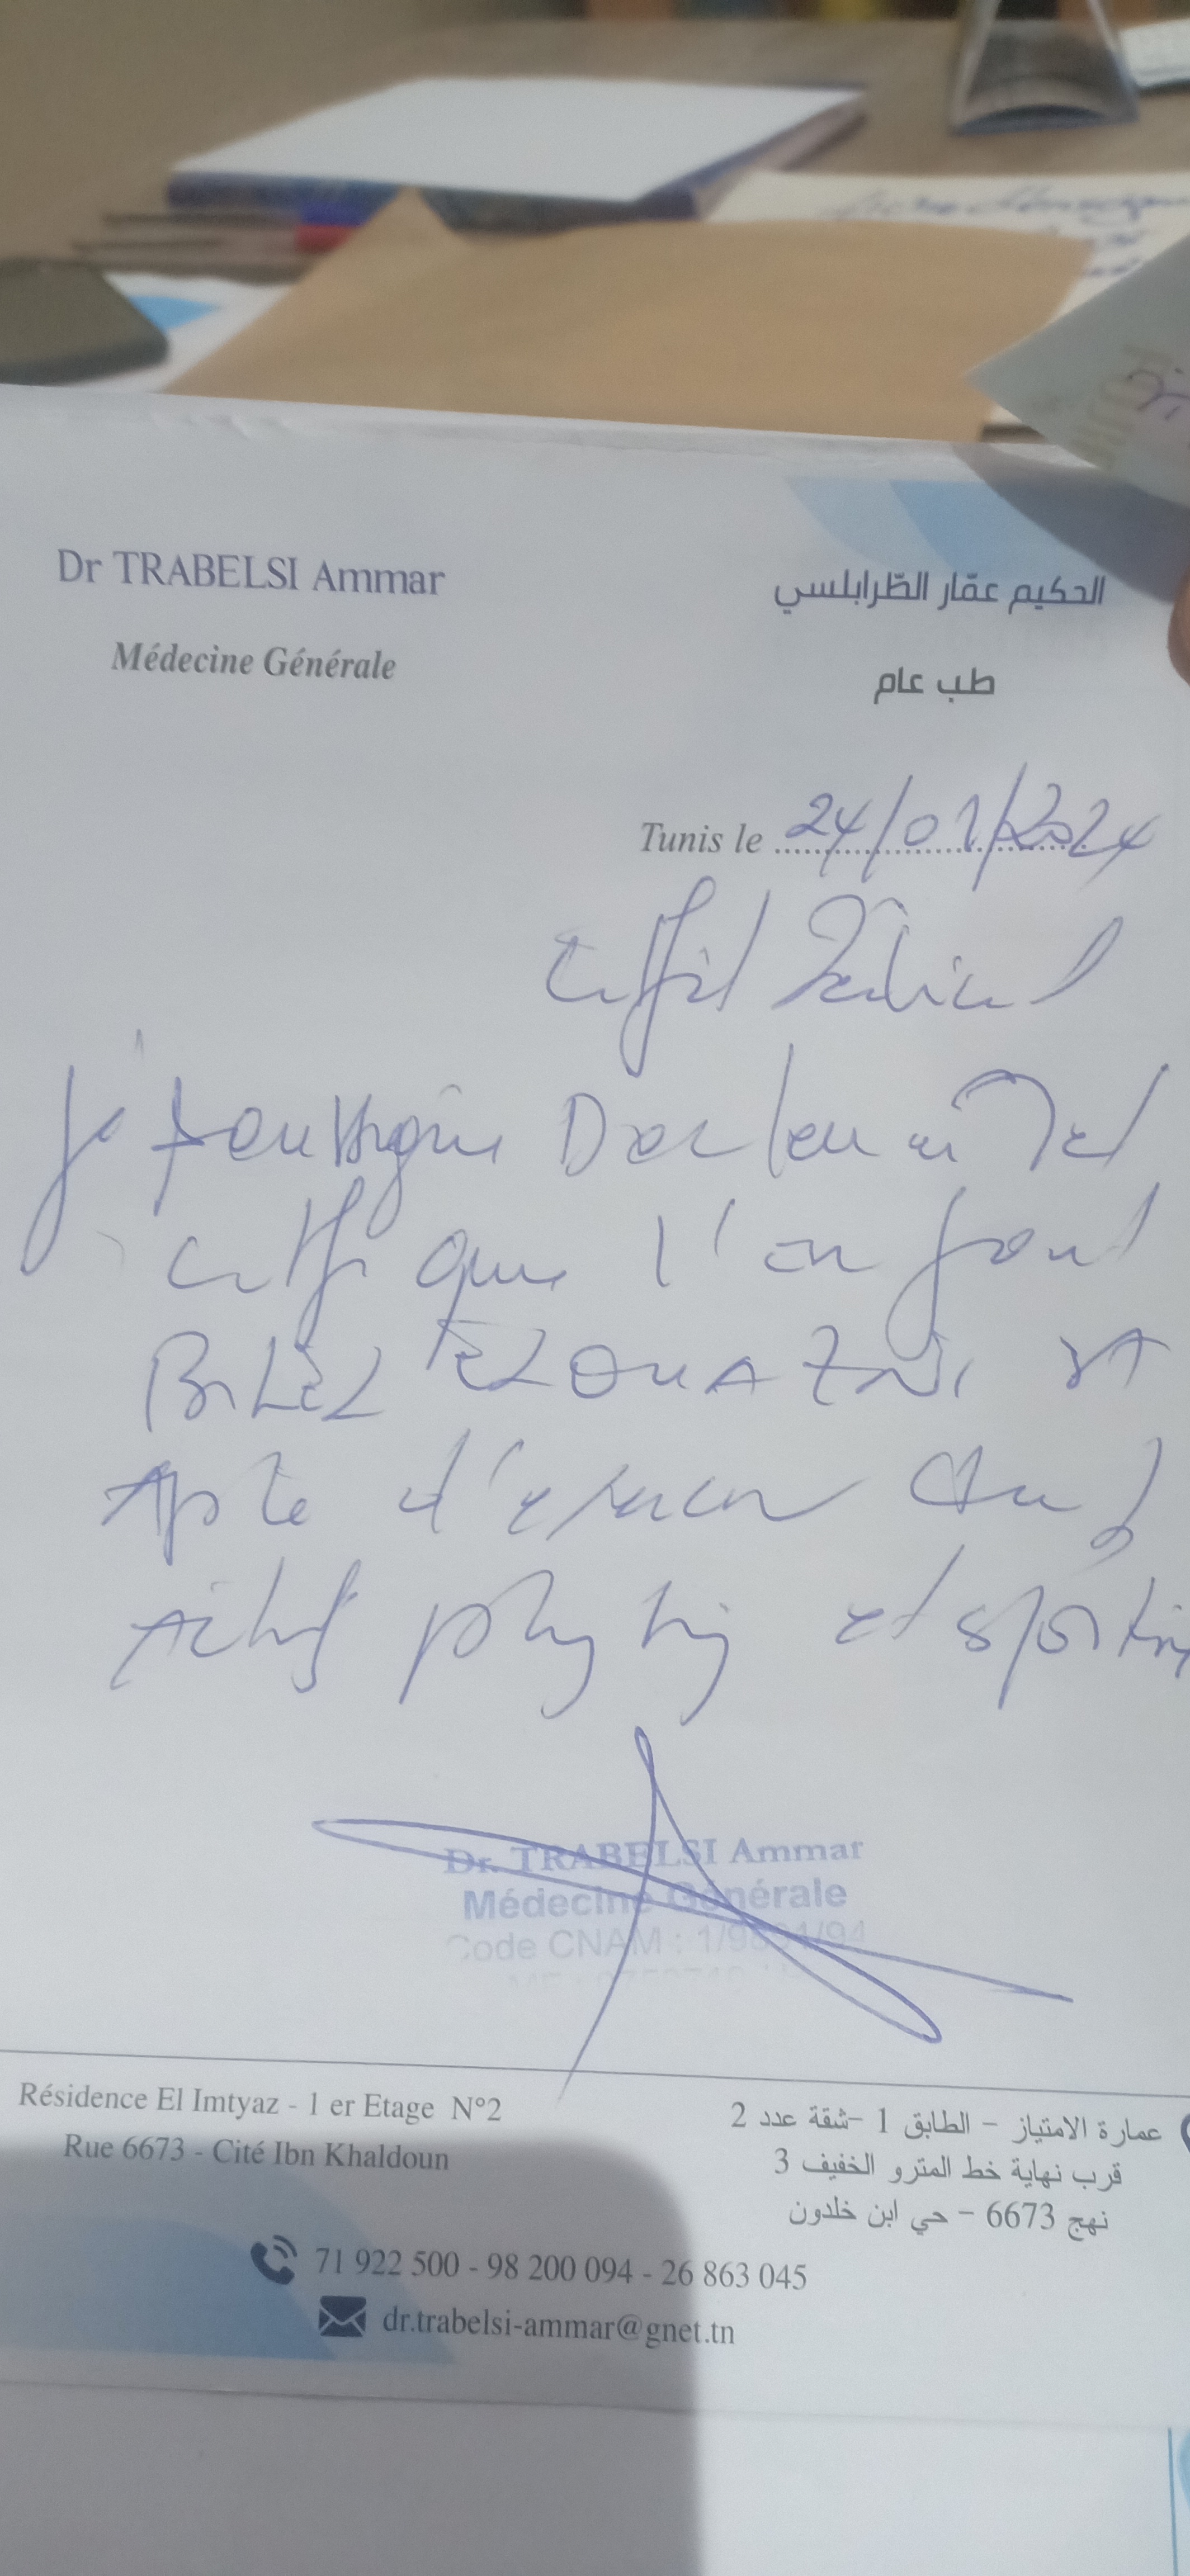 Dr TRABELSI Ammar
الحكيم عمّار الطّرابلسي
Médecine Générale
طب عام
Tunis le 24/01/2024
Certificat Médical
Je soussigné Docteur en Med
certifie que l'enfant
BILEL ELOUAZNI est
Apte d'exercer
physiq et sportiv
Dr. TRABELSI Ammar
Médecine Générale
Code CNAM :
Résidence El Imtyaz - 1 er Etage N°2
Rue 6673 - Cité Ibn Khaldoun
عمارة الامتياز - الطابق 1 -شقة عدد 2
قرب نهاية خط المترو الخفيف 3
نهج 6673 - حي ابن خلدون
71 922 500 - 98 200 094 - 26 863 045
dr.trabelsi-ammar@gnet.tn